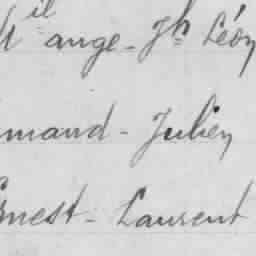 ange - Jh Léon
mand - Julien
rnest - Laurent